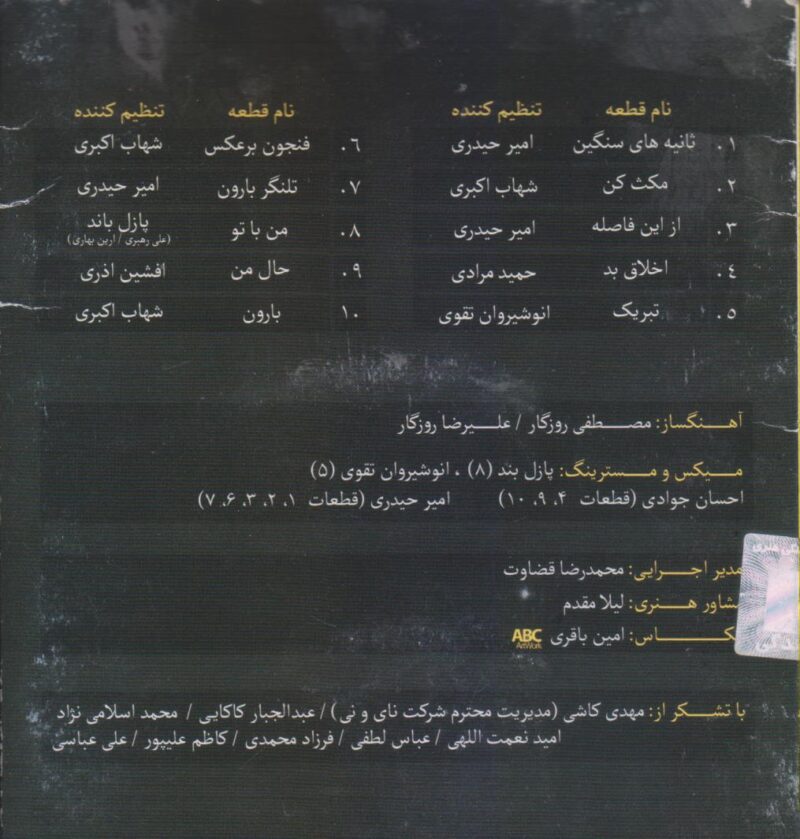 نام قطعه تنظیم کننده
۱. ثانیه های سنگین امیر حیدری
۲. مکث کن شهاب اکبری
۳. از این فاصله امیر حیدری
٤. اخلاق بد حمید مرادی
۵. تبریک انوشیروان تقوی
نام قطعه تنظیم کننده
٦. فنجون برعکس شهاب اکبری
۷. تلنگر بارون امیر حیدری
۸. من با تو پازل باند
(علی رهبری / آرین بهاری)
۹. حال من افشین آذری
۱۰. بارون شهاب اکبری
آهنگساز: مصطفی روزگار / علیرضا روزگار
میکس و مسترینگ: پازل بند (۸) ، انوشیروان تقوی (۵)
احسان جوادی (قطعات ۴، ۹، ۱۰) امیر حیدری (قطعات ۱، ۲، ۳، ۶، ۷)
مدیر اجرایی: محمدرضا قضاوت
مشاور هنری: لیلا مقدم
عکاس: امین باقری ABC
ArtWork
با تشکر از: مهدی کاشی (مدیریت محترم شرکت نای و نی) / عبدالجبار کاکایی / محمد اسلامی نژاد
امید نعمت اللهی / عباس لطفی / فرزاد محمدی / کاظم علیپور / علی عباسی